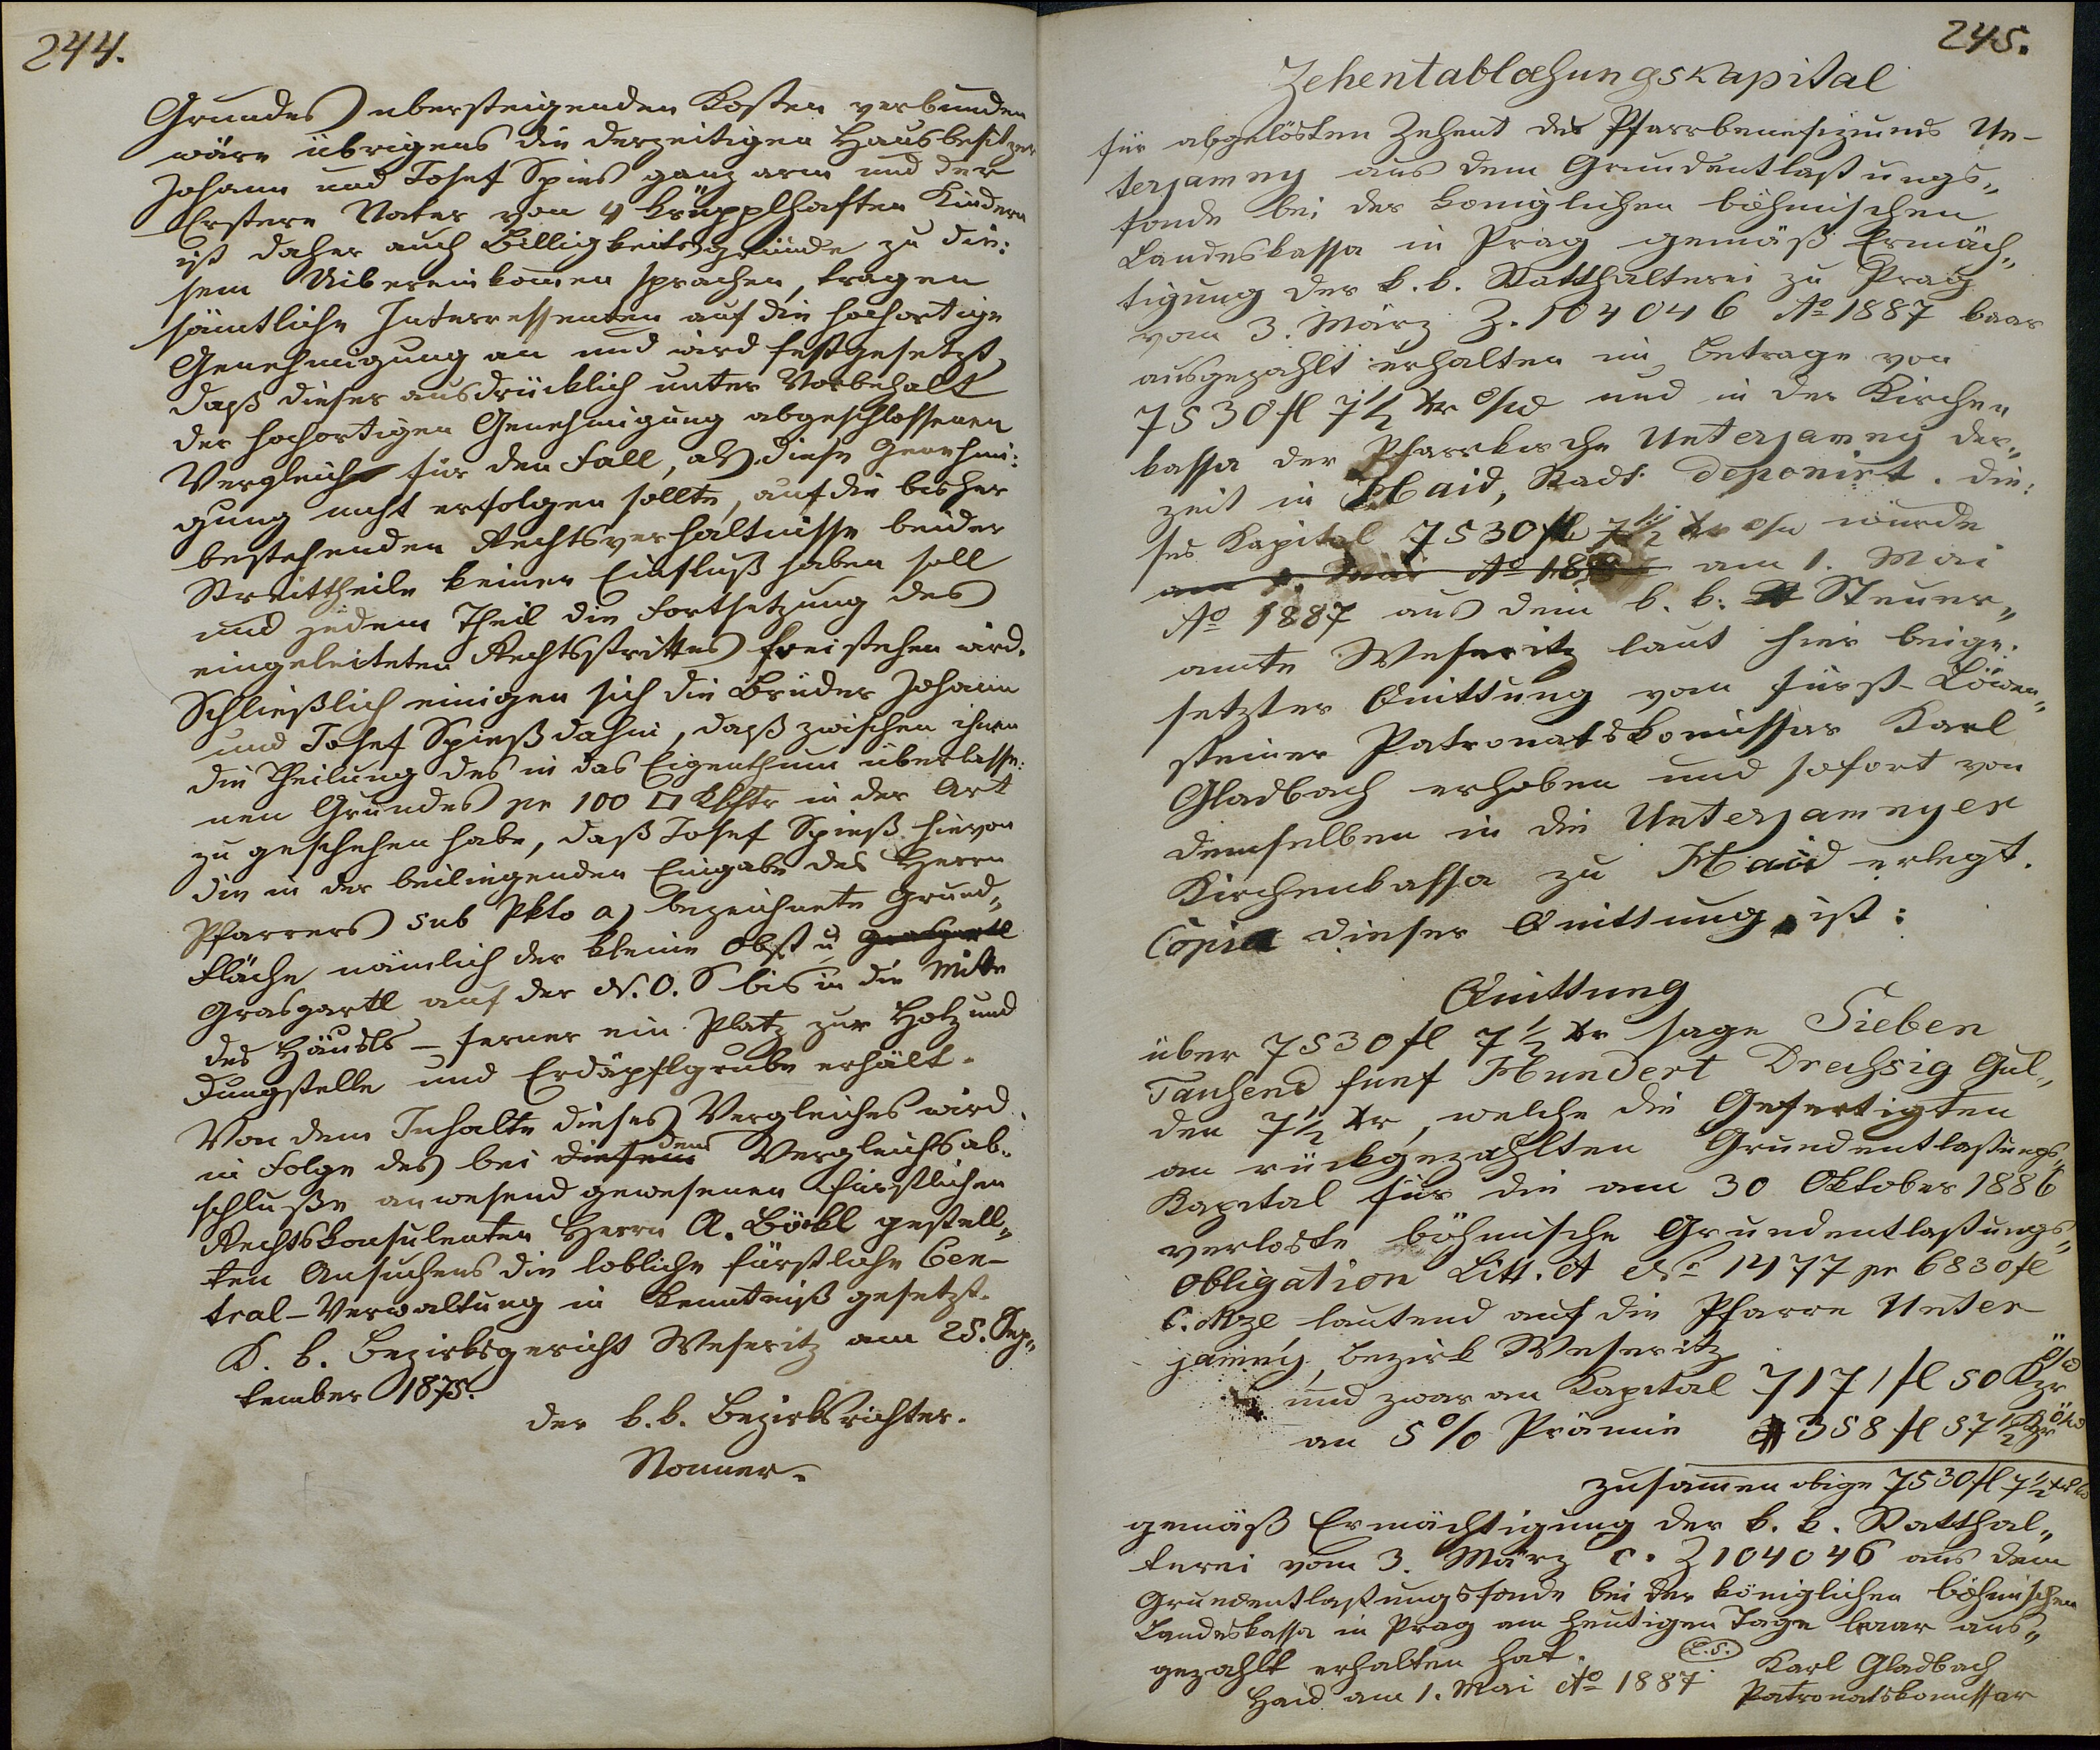 244.
Grundes übersteigenden Kosten verbunden
wäre übrigens die derzeitigen Hausbesitzer
Johann und Josef Spies ganz arm und der
Erstere Vater von 4 krüpplhaften Kindern
ist daher auch Billigkeitsgründe zu die:
sem Uibereinkomen sprachen, tragen
sämtliche Interressenten auf die hochortige
Genehmigung an und wird festgesetzt,
daß dieser ausdrücklich unter Vorbehalt
der hochortigen Genehmigung abgeschlossenen
Vergleich für den Fall, als diese Genehmi:
gung nicht erfolgen sollte, auf die bisher
bestehenden Rechtsverhältnisse beider
Streittheile keinen Einfluß haben soll
und jedem Theil die Fortsetzung des
eingeleiteten Rechtsstrittes frei stehen wird.
Schließlich einigen sich die Brüder Johann
und Josef Spieß dahin, daß zwischen ihnen
die Theilung des in das Eigenthum überlasse:
nen Grundes pr 100 □ Klftr in der Art
zu geschehen habe, daß Josef Spieß hievon
die in der beiliegenden Eingabe des Herrn
Pfarrers sub Pkto a) bezeichnete Grund„
fläche nämlich der kleine Obst u Grasgartl
Grasgartl auf der N.O.S bis in die Mitte
des Häusls – ferner ein Platz zur Holz und
Dungstelle und Erdäpflgrube erhält.
Von dem Inhalte dieses Vergleiches wird
in Folge des bei diesem dem Vergleichsab„
schluße anwesend gewesenen fürstlichen
Rechtskonsulenten Herrn A. Böckl gestell„
ten Ansuchens die lobliche fürstliche Cen–
tral–Verwaltung in Kenntniß gesetzt.
K. k. Bezirksgericht Weseritz am 25. Sep„
tember 1875.
der k.k. Bezirksrichter.
Nonner.
245.
Zehentablösungskapital
für abgelösten Zehent des Pfarrbenefiziums Un–
terjamny aus dem Grundentlastungs„
fonde bei der königlichen böhmischen
Landeskassa in Prag gemäß Ermäch„
tigung der k.k. Statthalterei zu Prag
vom 3. März Z. 104046 Ao 1887 baar
ausgezahlt erhalten im Betrage von
7530 fl 7 1/2 xr ö/w und in der Kirchen
kassa der Pfarrkirche Unterjamny der„
zeit in Haid, Stadt deponirt. Die:
ses Kapital 7530 fl 7 1/2 xr ö/w wurde
am 1. Mai Ao 188 am 1. Mai
Ao 1887 aus dem k.k. Steuer„
amte Weseritz laut hier beige:
setzter Quittung vom fürst–Löwen„
steiner Patronatskomissar Karl
Gladbach erhoben und sofort von
demselben in die Unterjamnyer
Kirchenkassa zu Haid erlegt.
Copia dieser Quittung ist:
Quittung
über 7530 fl 7 1/2 xr sage Sieben
Tausend fünf Hundert Dreissig Gul„
den 7 1/2 xr, welche die Gefertigten
an rückgezahlten Grundentlastungs„
Kapital für die am 30 Oktober 1886
verloste böhmische Grundentlastungs„
Obligation Litt. A No 1477 pr 6830 fl
C. Mze lautend auf die Pfarre Unter
jamny, Bezirk Weseritz
und zwar an Kapital 7171 fl 50 Kzr ö/w
an 5% Prämie 358 fl 57 1/2 Kzr ö/w
zusammen obige 7530 fl 7 1/2 xr ö/w
gemäß Ermächtigung der k.k. Statthal„
terei vom 3. März c. Z 104046 aus dem
Grundentlastungsfonde bei der königlichen böhmischen
Landeskassa in Prag am heutigen Tage baar aus„
gezahlt erhalten hat.
L.S.
Karl Gladbach
Haid am 1. Mai Ao 1887
Patronatskomissar